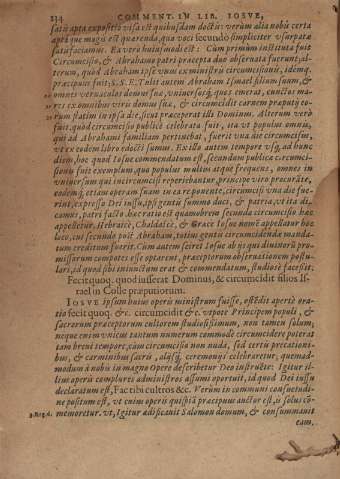 234 COMMENT. IN LIB. IOSVE,
satis apta expositio visa est quibusdam doctis: verùm alia nobis certa
aptáque magis est quærenda, qua voci secundo simpliciter vsurpatæ
satisfaciamus. Ea verò huiusmodi est: Cùm primùm instituta fuit
Circumcisio, & Abrahamo patri præcepta duo obseruata fuerunt, al-
terum, quod Abraham ipse vnus ex ministerij circumcisionis, idemq́.
præcipuus fuit, S. S. E. Tulit autem Abraham Ismael filium suum, &
omneis vernaculos domus suæ, vniuersosq́; quos emerat, cunctos ma-
res ex omnibus viris domus suæ, & circumcidit carnem præputij eo-
rum statim in ipsa die, sicut præceperat illi Dominus. Alterum verò
fuit, quòd circumcisio publicè celebrata fuit, ita vt populus omnis,
qui ad Abrahami familiam pertinebat, fuerit vna die circumcisus,
vt ex eodem libro edocti sumus. Ex illo autem tempore vsq́; ad hunc
diem, hoc quod Iosue commendatum est, secundum publicæ circumci-
sionis fuit exemplum, quo populus multus atque frequens, omnes in
vniuersum qui incircumcisi reperiebantur, principe viro procurāte,
eodemq́; etiam operam suam in ea re ponente, circumcisi vna die fue-
rint, expressa Dei iussu, ipsi gentis summo duci, & patria, vt ita di-
camus, patri facto. hæc ratio est quamobrem secunda circumcisio hæc
appelletur. Hebraicè, Chaldaicè, & Græcè Iosue nomē appellatur hoc
loco, cui secundo post Abraham, totius gentis circumcidendæ manda-
tum creditum fuerit. Cùm autem sciret Iosue ab ijs qui diuinarū pro-
missarum compotes esse optarent, præceptorum obseruationem postu-
lari, id quod sibi iniunctum erat & commendatum, studiosè facessit.
Fecit quoq. quod iusserat Dominus, & circumcidit filios Is-
rael in Colle præputiorum.
IOSVE ipsum huius operis ministrum fuisse, ostēdit apertè ora-
tio fecit quoq. &c. circumcidit &c. vtpote Principem populi, &
sacrorum præceptorum cultorem studiosissimum, non tamen solum,
neque enim vnicus tantum numerum commodè circumcidere poterat
tam breui tempore, cùm circumcisio non nuda, sed certis precationi-
bus, & carminibus sacris, alijsq́; ceremonijs celebraretur, quemad-
modum à nobis in magno Opere describetur Deo instructe: Igitur il-
lius operis complures administros assumi oportuit, id quod Dei iussu
declaratum est, Fac tibi cultros &c. Verùm in communi consuetudi-
ne positum est, vt cuius operis quispiā præcipuus auctor est, is solus cō-
3.Reg.6. memoretur. vt, Igitur ædificauit Salomon domum, & consummauit
eam,